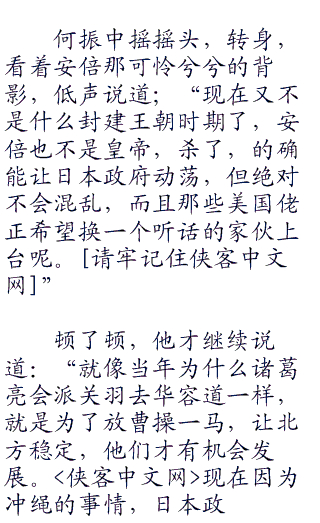 何振中摇摇头，转身，
看着安倍那可怜兮兮的背
影，低声说道；“现在又不
是什么封建王朝时期了，安
倍也不是皇帝，杀了，的确
能让日本政府动荡，但绝对
不会混乱，而且那些美国佬
正希望换一个听话的家伙上
台呢。[请牢记住侠客中文
网]”
顿了顿，他才继续说
道：“就像当年为什么诸葛
亮会派关羽去华容道一样，
就是为了放曹操一马，让北
方稳定，他们才有机会发
展。<侠客中文网>现在因为
冲绳的事情，日本政